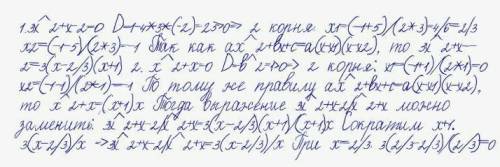 1.3x^2+x-2=0 D=1-4*3*(-2)=23>0=> 2 корня: x1=(-1+5)/(2*3)=4/6=2/3
x2=(-1-5)/(2*3)=-1 Так как ax^2+bx+c=a(x-x1)(x-x2), то 3x^2+x-
2=3(x-2/3)(x+1) 2. x^2+x=0 D=b^2=1>0=> 2 корня: x1=(-1+1)/(2*1)=0
x2=(-1-1)/(2*1)=-1 По тому же правилу ax^2+bx+c=a(x-x1)(x-x2),
то x^2+x=(x+1)x Тогда выражение 3x^2+x-2/x^2+x можно
заменить: 3x^2+x-2/x^2+x=3(x-2/3)(x+1)/(x+1)x Сократим x+1.
3(x-2/3)/x =>3x^2+x-2/x^2+x=3(x-2/3)/x При x=2/3: 3(2/3-2/3)/(2/3)=0